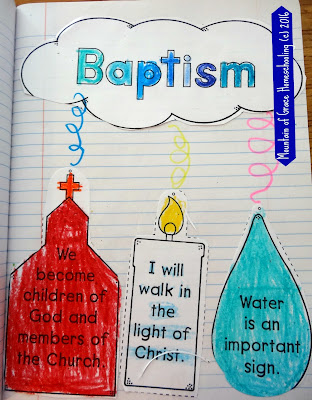 Baptism
Mountain of Grace Homeschooling (c) 2016
We
become
children of
God and
members of
the Church.
I will
walk in
the
light of
Christ.
Water
is an
important
sign.